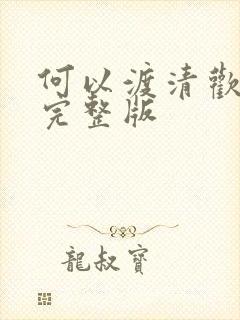 何以渡清歡
完整版
龍叔寶